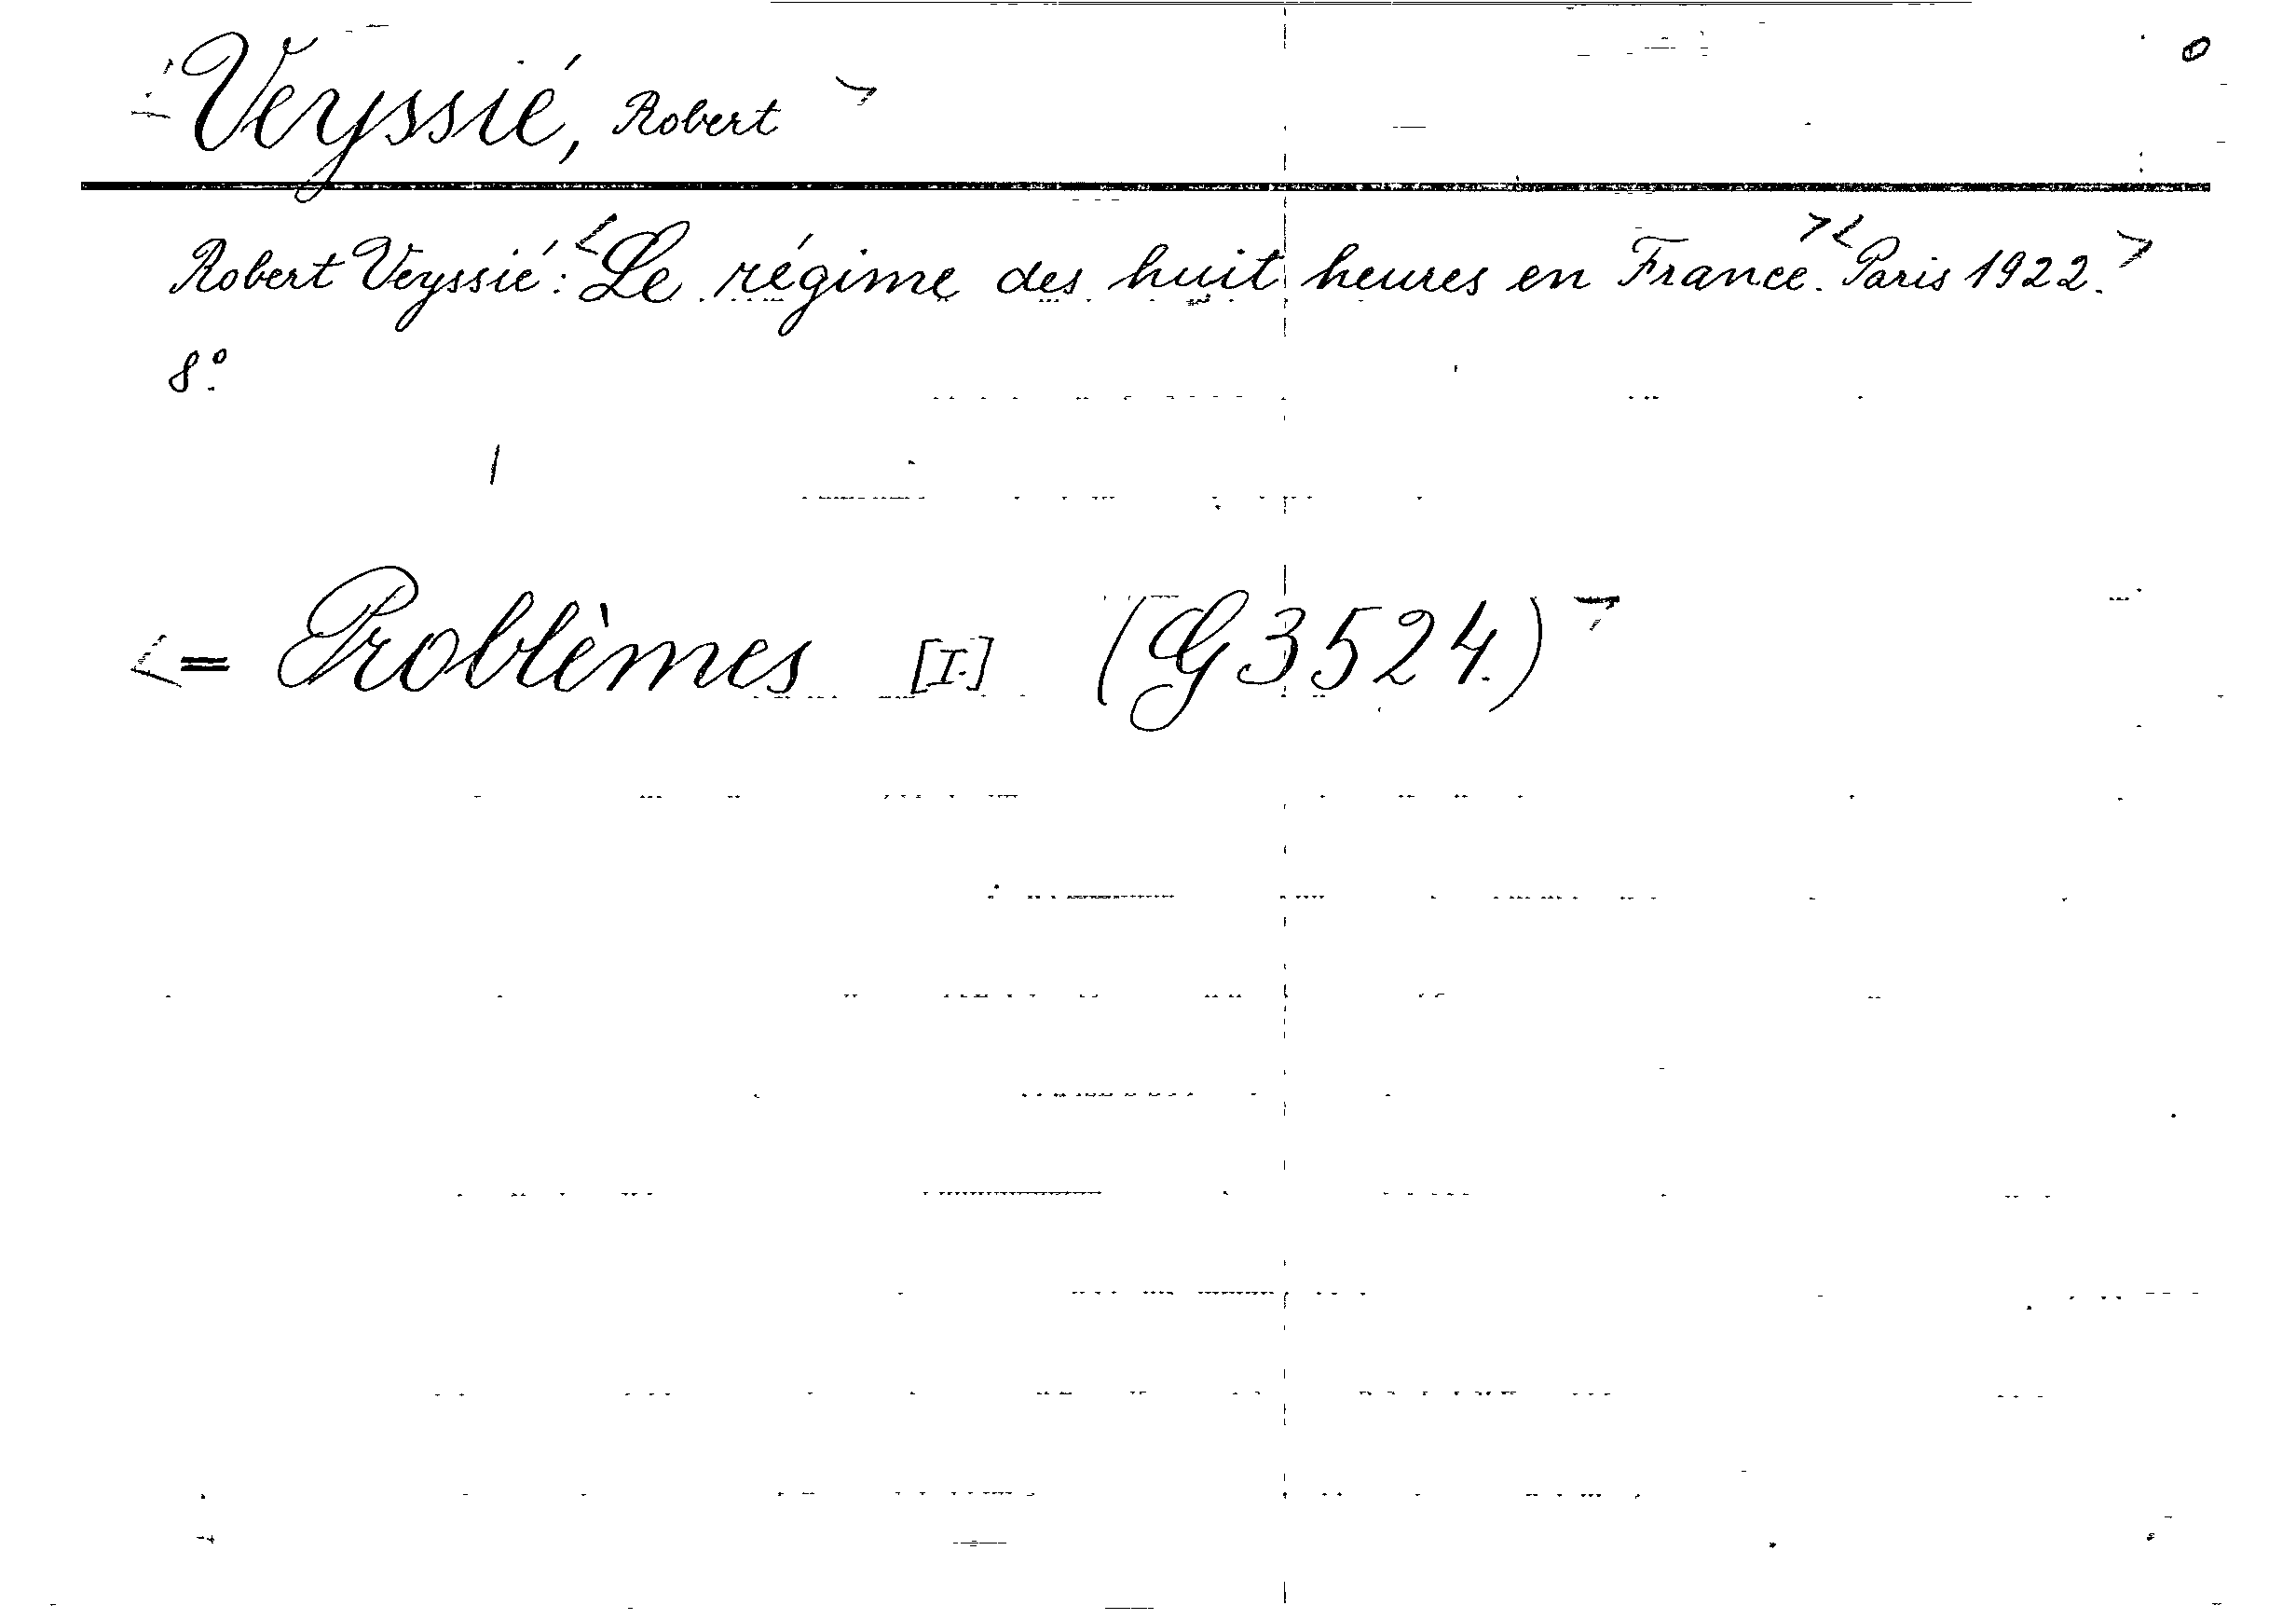 Veyssié, Robert
Robert Veyssié: Le régime des huit heures en France. Paris 1922.
8°.
= Problèmes [I.] (G 3524.)